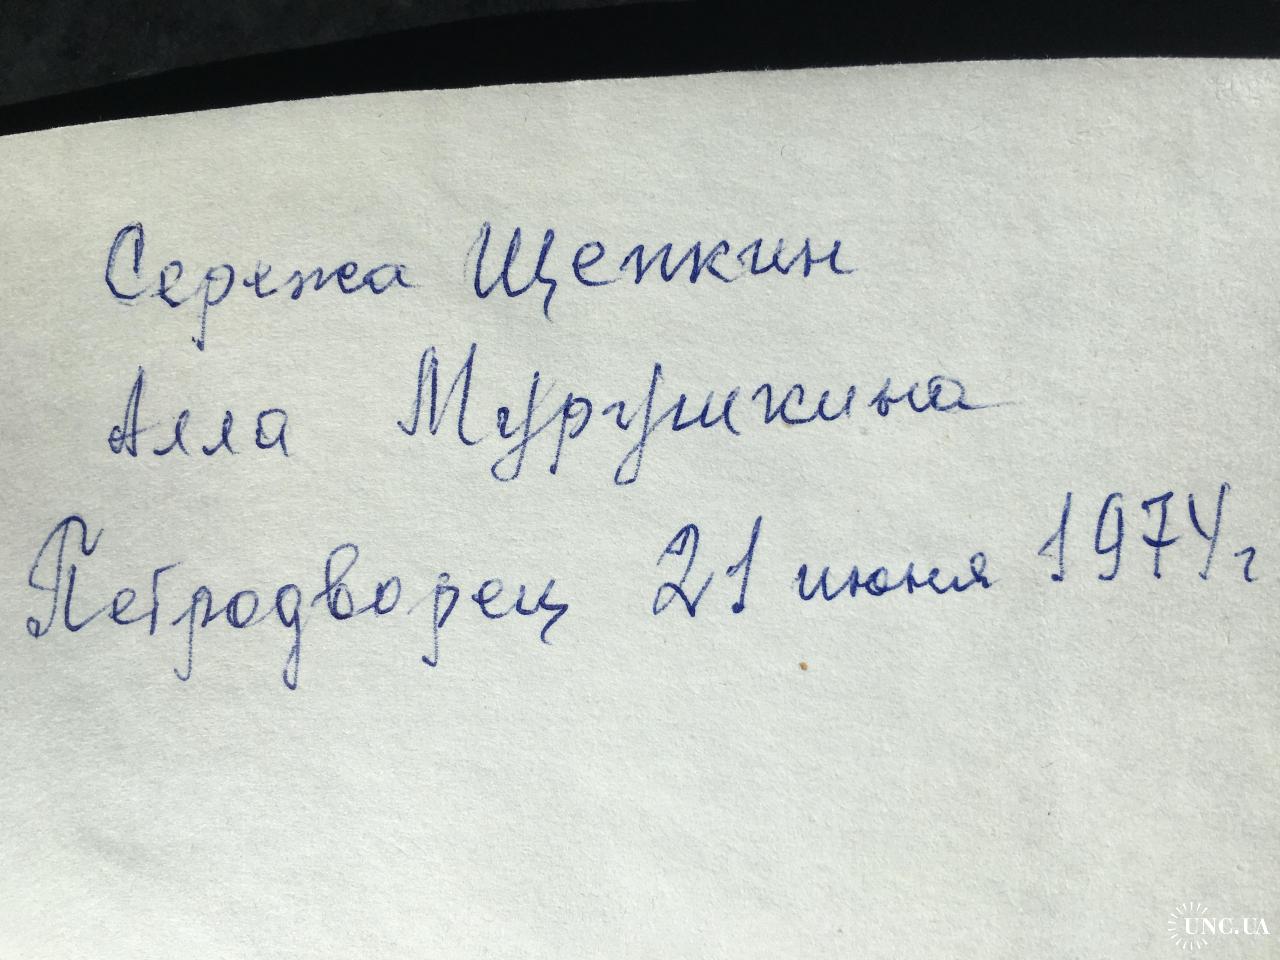 Сережа Щепкин
Алла Мургушкина
Петродворец 21 июня 1974 г
UNC.UA